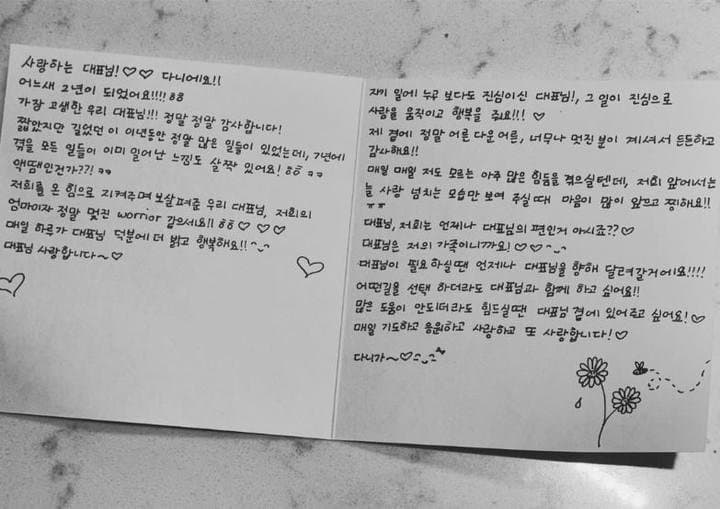 사랑하는 대표님!♡♡ 다니에요!!
어느새 2년이 되었어요!!!! ㅎㅎ
가장 고생한 우리 대표님!!! 정말 정말 감사합니다!
짧았지만 길었던 이 이년동안 정말 많은 일들이 있었는데, 7년에
겪을 모든 일들이 이미 일어난 느낌도 살짝 있어요! ㅎㅎ ㅋㅋ
액땜인건가??! ㅋㅋ
저희를 온 힘으로 지켜주며 보살펴준 우리 대표님, 저희의
엄마이자 정말 멋진 worrior 같으세요!! ㅎㅎ ♡♡♡
매일 하루가 대표님 덕분에 더 밝고 행복해요!! ^_^
대표님 사랑합니다~♡
자기 일에 누구 보다도 진심이신 대표님!, 그 일이 진심으로
사람을 움직이고 행복을 줘요!!! ♡
제 곁에 정말 어른 다운 어른, 너무나 멋진 분이 계셔서 든든하고
감사해요!!
매일 매일 저도 모르는 아주 많은 힘듦을 겪으실텐데, 저희 앞에서는
늘 사랑 넘치는 모습만 보여 주실때 마음이 많이 아프고 찡해요!!
ㅠㅠ
대표님, 저희는 언제나 대표님의 편인거 아시죠??♡
대표님은 저의 가족이니까요! ♡♡^_^
대표님이 필요하실땐 언제나 대표님을 향해 달려갈거에요!!!!
어떤길을 선택 하더라도 대표님과 함께 하고 싶어요!!
많은 도움이 안되더라도 힘드실땐 대표님 곁에 있어주고 싶어요! ♡
매일 기도하고 응원하고 사랑하고 또 사랑합니다! ♡
다니가~♡